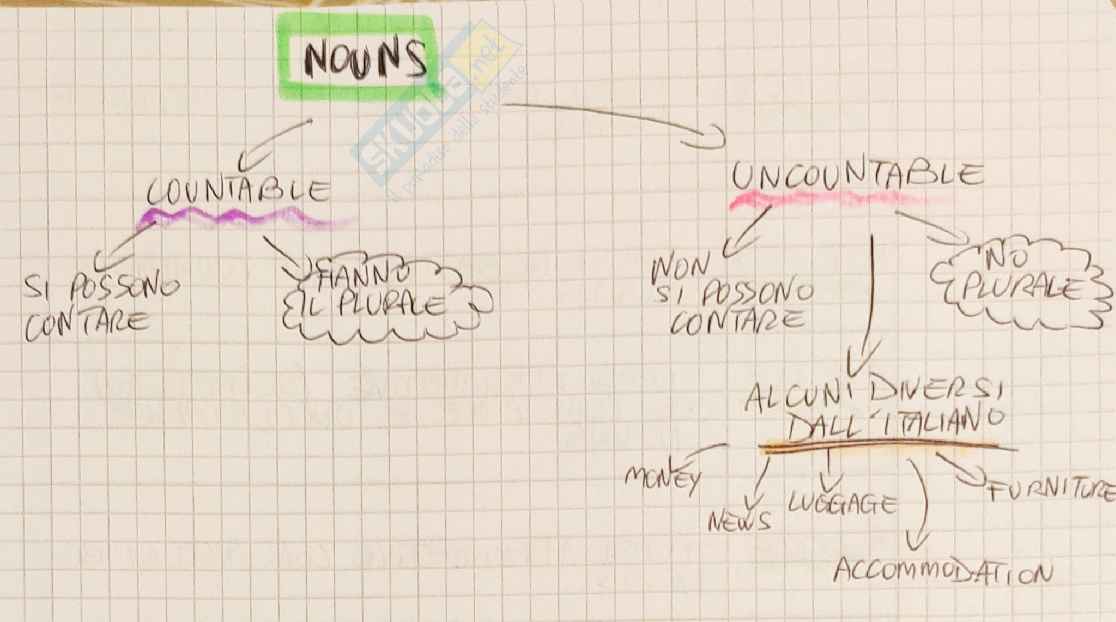 NOUNS
SKUOLA.net
COUNTABLE
SI POSSONO
CONTARE
HANNO
IL PLURALE
UNCOUNTABLE
NON
SI POSSONO
CONTARE
NO
PLURALE
ALCUNI DIVERSI
DALL'ITALIANO
MONEY
NEWS
LUGGAGE
ACCOMMODATION
FURNITURE